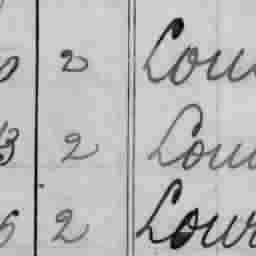 2 Lou
3 2 Lou
2 Lour